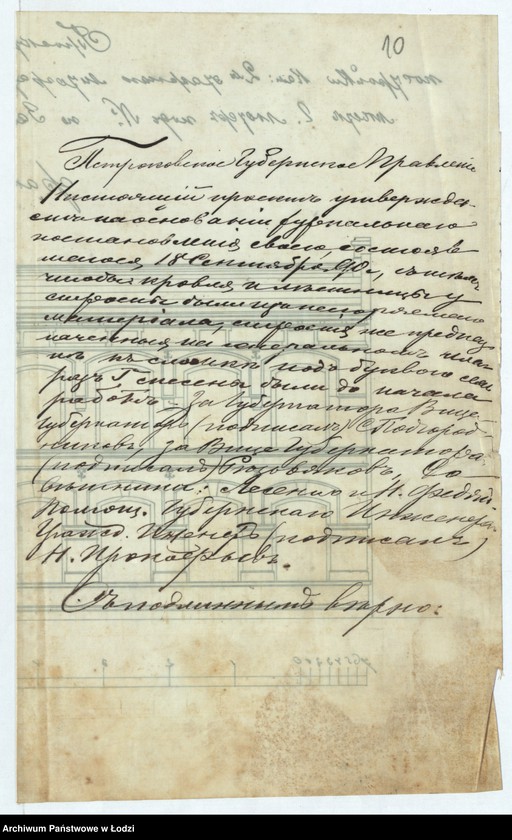 10
Петроковское Губернское Правление
Настоящий проектъ утвержда-
етъ на основаніи журнальнаго
постановленія своего, состояв-
шагося 18 Сентября 90 г., съ тѣмъ
чтобы кровля и лѣстницы у
строеній были изъ несгораемаго
матеріала, строенія же предназ-
наченныя на генеральномъ
планѣ къ сломкѣ подъ буквою
Г снесены были до начала
работъ За Губернатора Вице-
Губернаторъ (подписалъ) С. Подгород-
никовъ, За Вице Губернатора
(подписалъ) Со-
вѣтника:
Помощ. Губернскаго Инженера
Гражд. Инженеръ (подписалъ)
Н. Прокофьевъ.
Съ подлиннымъ вѣрно:
Archiwum Państwowe w Łodzi